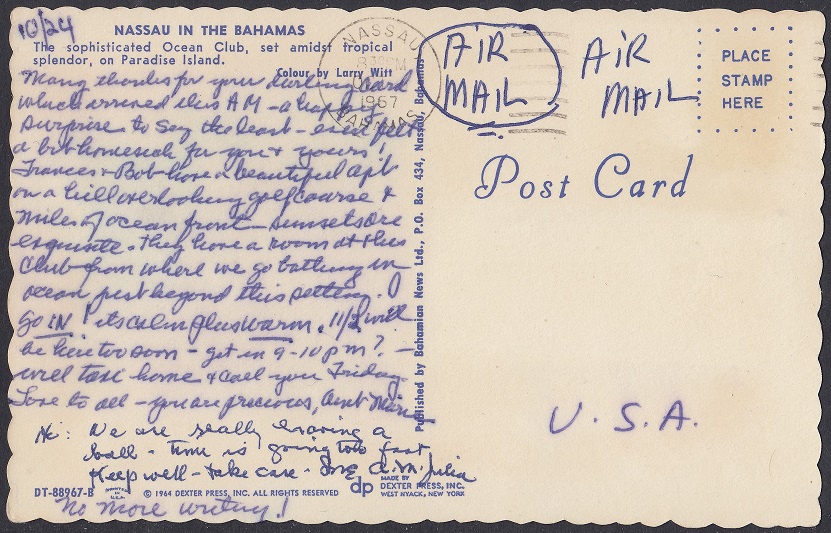 10/24
NASSAU IN THE BAHAMAS
The sophisticated Ocean Club, set amidst tropical
splendor, on Paradise Island.
Colour by Larry Witt
Many thanks for your darling card
which arrived this A M - a
surprise to say the least - even felt
a bit homesick for you & yours!
Frances & Bob have a beautiful apt
on a hill overlooking golf course &
miles of ocean front - sunsets are
exquisite. They have a room at this
Club from where we go bathing in
ocean just beyond this setting. I
go IN! its calm plus warm. 11/2 will
be here too soon - get in 9-10 pm? -
will taxi home & call you Friday.
Love to all - you are precious, Aunt
Hi: We are really having a
ball - time is going too fast
Keep well - take care - Julia
No more writing!
DT-88967-B
PRINTED IN U.S.A.
© 1964 DEXTER PRESS, INC. ALL RIGHTS RESERVED
dp
MADE BY
DEXTER PRESS, INC.
WEST NYACK, NEW YORK
Published by Bahamian News Ltd., P.O. Box 434, Nassau, Bahamas
NASSAU
1967
BAHAMAS
AIR
MAIL
AIR
MAIL
PLACE
STAMP
HERE
Post Card
U.S.A.